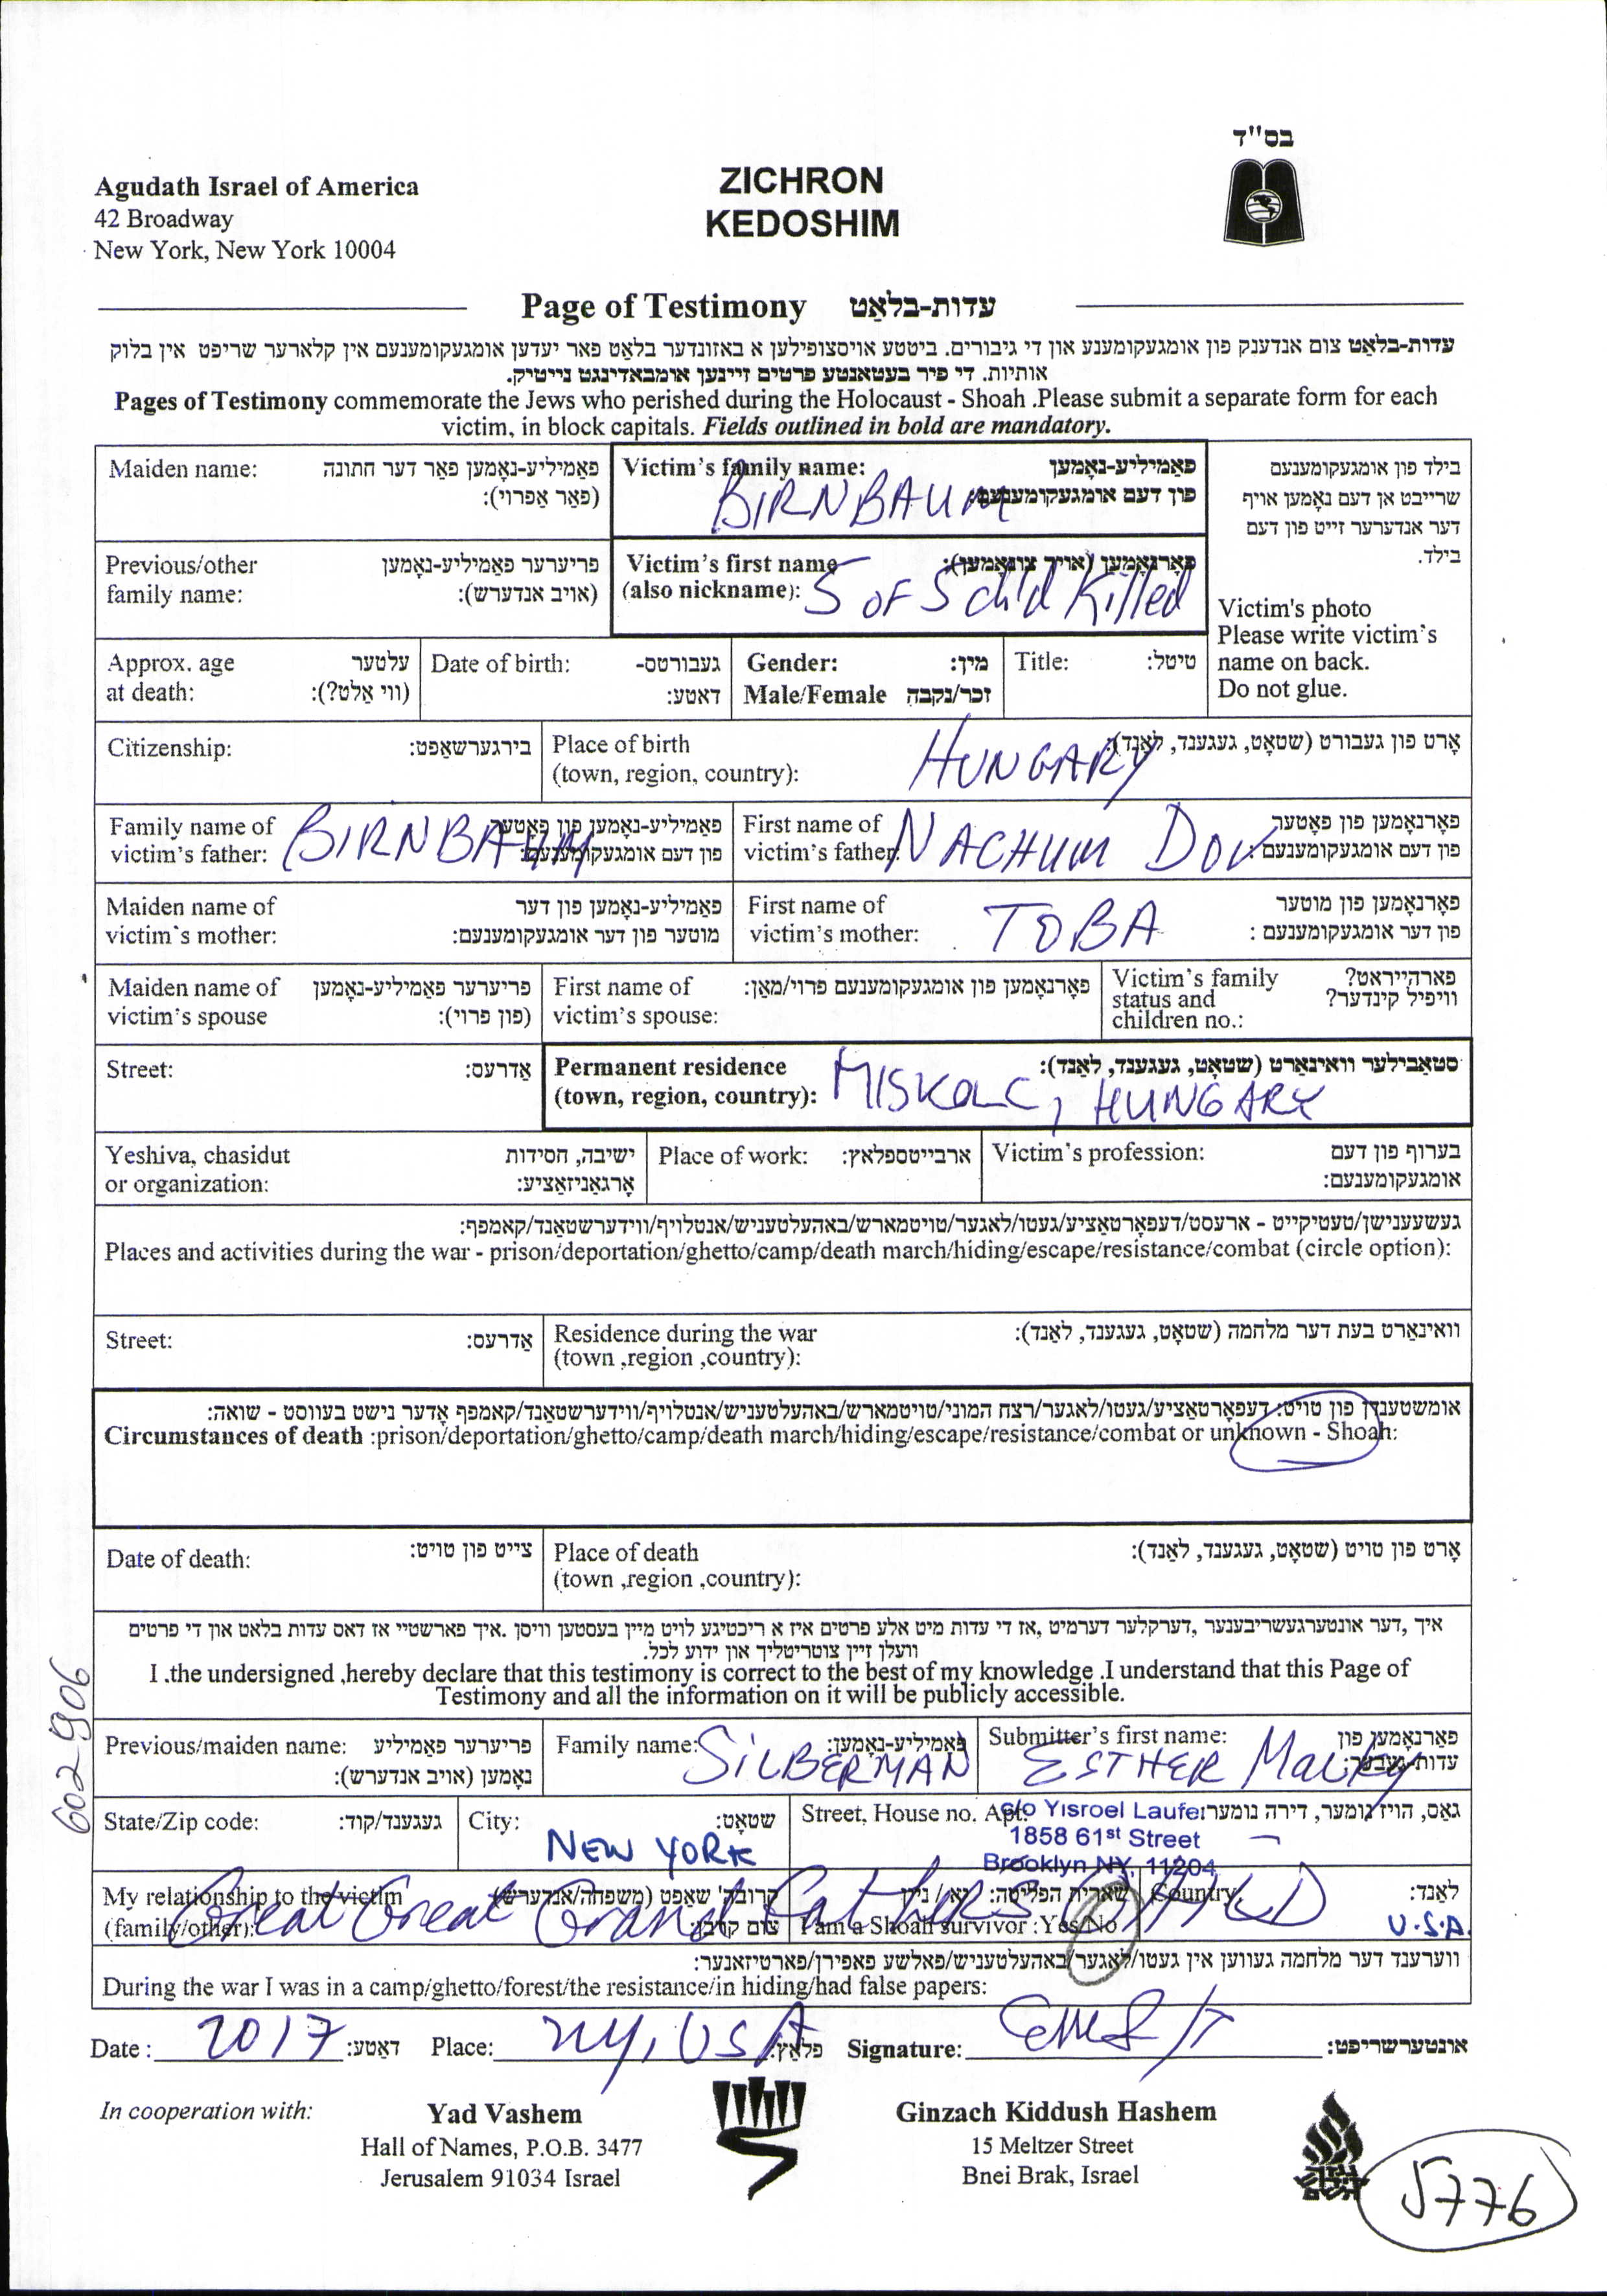 בס"ד
Agudath Israel of America
42 Broadway
New York, New York 10004
ZICHRON
KEDOSHIM
Page of Testimony עדות-בלאַט
עדות-בלאַט צום אנדענק פון אומגעקומענע און די גיבורים. ביטטע אויסצופילען א באזונדער בלאַט פאר יעדען אומגעקומענעם אין קלארער שריפט אין בלוק
אותיות. די פיר בעטאנטע פרטים זיינען אומבאדינגט נייטיק.
Pages of Testimony commemorate the Jews who perished during the Holocaust - Shoah .Please submit a separate form for each
victim, in block capitals. Fields outlined in bold are mandatory.
Maiden name: פאַמיליע-נאָמען פאַר דער חתונה
(פאַר אַפרוי):
Victim's family name: פאַמיליע-נאָמען
פון דעם אומגעקומענעם:
BIRNBAUM
בילד פון אומגעקומענעם
שרייבט אן דעם נאָמען אויף
דער אנדערער זייט פון דעם
בילד.
Victim's photo
Please write victim's
name on back.
Do not glue.
Previous/other פריערער פאַמיליע-נאָמען
family name: (אויב אנדערש):
Victim's first name פאָרנאָמען (אויך צונאָמען):
(also nickname): 5 OF 5 child Killed
Approx. age עלטער
at death: (ווי אַלט?):
Date of birth: געבורטס-
דאַטע:
Gender: מין:
Male/Female זכר/נקבה
Title: טיטל:
Citizenship: בירגערשאַפט:
Place of birth אָרט פון געבורט (שטאָט, געגענד, לאַנד):
(town, region, country): HUNGARY
Family name of פאַמיליע-נאָמען פון פאָטער
victim's father: פון דעם אומגעקומענעם:
BIRNBAUM
First name of פאָרנאָמען פון פאָטער
victim's father: פון דעם אומגעקומענעם:
NACHUM DOV
Maiden name of פאַמיליע-נאָמען פון דער
victim's mother: מוטער פון דער אומגעקומענעם:
First name of פאָרנאָמען פון מוטער
victim's mother: פון דער אומגעקומענעם :
TOBA
Maiden name of פריערער פאַמיליע-נאָמען
victim's spouse (פון פרוי):
First name of פאָרנאָמען פון אומגעקומענעם פרוי/מאַן:
victim's spouse:
Victim's family פארהייראט?
status and וויפיל קינדער?
children no.:
Street: אַדרעס:
Permanent residence סטאַבילער וואינאָרט (שטאָט, געגענד, לאַנד):
(town, region, country): MISKOLC, HUNGARY
Yeshiva, chasidut ישיבה, חסידות
or organization: אָרגאַניזאַציע:
Place of work: ארבייטספלאץ:
Victim's profession: בערוף פון דעם
אומגעקומענעם:
געשעענישן/טעטיקייט - ארעסט/דעפאָרטאַציע/געטו/לאגער/טויטמארש/באהעלטעניש/אנטלויף/ווידערשטאַנד/קאמפף:
Places and activities during the war - prison/deportation/ghetto/camp/death march/hiding/escape/resistance/combat (circle option):
Street: אַדרעס:
Residence during the war וואינאָרט בעת דער מלחמה (שטאָט, געגענד, לאַנד):
(town ,region ,country):
אומשטענדן פון טויט: דעפאָרטאַציע/געטו/לאגער/רצח המוני/טויטמארש/באהעלטעניש/אנטלויף/ווידערשטאַנד/קאמפף אָדער נישט בעוווסט - שואה:
Circumstances of death :prison/deportation/ghetto/camp/death march/hiding/escape/resistance/combat or unknown - Shoah:
Date of death: צייט פון טויט:
Place of death אָרט פון טויט (שטאָט, געגענד, לאַנד):
(town ,region ,country):
איך ,דער אונטערגעשריבענער ,דערקלער דערמיט ,אז די עדות מיט אלע פרטים איז א ריכטיגע לויט מיין בעסטען וויסן .איך פארשטיי אז דאס עדות בלאט און די פרטים
וועלן זיין צוטריטליך און ידוע לכל.
I .the undersigned ,hereby declare that this testimony is correct to the best of my knowledge .I understand that this Page of
Testimony and all the information on it will be publicly accessible.
602-906
Previous/maiden name: פריערער פאַמיליע
נאָמען (אויב אנדערש):
Family name: פאַמיליע-נאָמען:
SILBERMAN
Submitter's first name: פאָרנאָמען פון
ESTHER Malky
State/Zip code: געגענד/קוד:
City: שטאָט:
NEW YORK
Street, House no. Apt: גאס, הויז נומער, דירה נומער:
c/o Yisroel Laufer
1858 61st Street
Brooklyn NY, 11204
My relationship to the victim קרובה' שאַפט (משפחה/אנדערש)
(family/other): צום קרבן:
Great Great Grand Fathers CHILD
שארית הפליטה: יא / ניין
I am a Shoah survivor :Yes/No
Country: לאַנד:
U.S.A.
ווערענד דער מלחמה געווען אין געטו/לאגער/באהעלטעניש/פאלשע פאפירן/פארטיזאנער:
During the war I was in a camp/ghetto/forest/the resistance/in hiding/had false papers:
Date : 2017 דאַטע: Place: NY, USA פלאַץ: Signature: אונטערשריפט:
In cooperation with:
Yad Vashem
Hall of Names, P.O.B. 3477
Jerusalem 91034 Israel
Ginzach Kiddush Hashem
15 Meltzer Street
Bnei Brak, Israel
5776